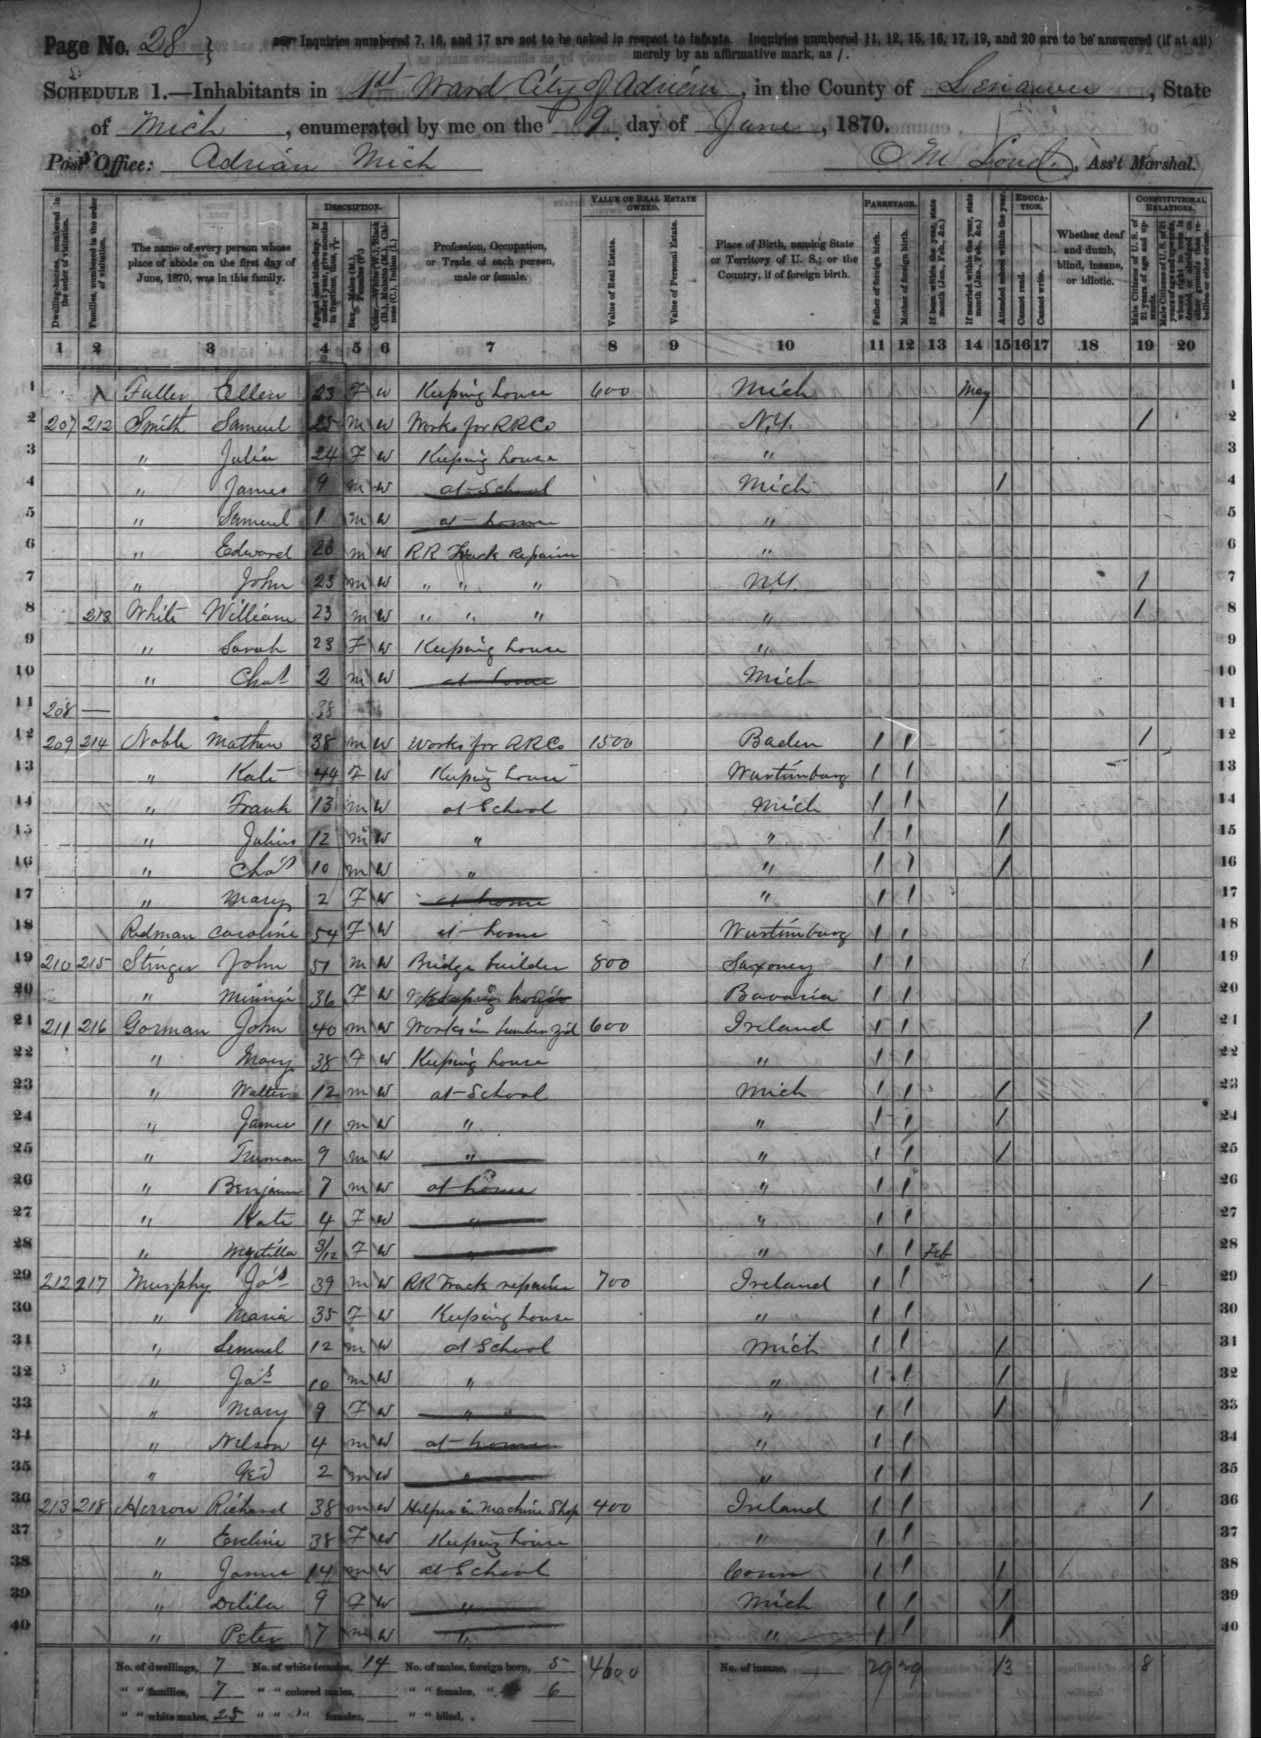 Page No. 28 } Inquiries numbered 7, 16, and 17 are not to be asked in respect to infants. Inquiries numbered 11, 12, 15, 16, 17, 19, and 20 are to be answered (if at all)
merely by an affirmative mark, as /.
SCHEDULE 1.—Inhabitants in 1st Ward City of Adrian, in the County of Lenawee, State
of Mich, enumerated by me on the 9 day of June, 1870.
Post Office: Adrian Mich
O M Loud, Ass't Marshal.
DESCRIPTION.
VALUE OF REAL ESTATE OWNED.
PARENTAGE.
EDUCATION.
CONSTITUTIONAL RELATIONS.
Dwelling-houses, numbered in the order of visitation.
Families, numbered in the order of visitation.
The name of every person whose place of abode on the first day of June, 1870, was in this family.
Profession, Occupation, or Trade of each person, male or female.
Value of Real Estate.
Value of Personal Estate.
Place of Birth, naming State or Territory of U. S.; or the Country, if of foreign birth.
Father of foreign birth.
Mother of foreign birth.
If born within the year, state month (Jan., Feb., &c.)
If married within the year, state month (Jan., Feb., &c.)
Attended school within the year.
Cannot read.
Cannot write.
Whether deaf and dumb, blind, insane, or idiotic.
1 2 3 4 5 6 7 8 9 10 11 12 13 14 15 16 17 18 19 20
1 Fuller Ellen 23 F W Keeping house 600 Mich May 1
2 207 212 Smith Samuel 25 M W Works for RR Co N.Y. / 2
3 " Julia 24 F W Keeping house " 3
4 " James 9 M W at School Mich / 4
5 " Samuel 1 M W at home " 5
6 " Edward 20 M W RR Track Repairer " 6
7 " John 23 M W " " " N.Y. / 7
8 213 White William 23 M W " " " " / 8
9 " Sarah 23 F W Keeping house " 9
10 " Chas 2 M W at home Mich 10
11 208 — 38 11
12 209 214 Noble Mathew 38 M W Works for RR Co 1500 Baden / / / 12
13 " Kate 44 F W Keeping house Wurtimburg / / 13
14 " Frank 13 M W at School Mich / / / 14
15 " Julius 12 M W " " / / / 15
16 " Chas 10 M W " " / / / 16
17 " Mary 2 F W at home " / / 17
18 Redman Caroline 54 F W at home Wurtimburg / / 18
19 210 215 Stinger John 51 M W Bridge builder 800 Saxoney / / / 19
20 " Minnie 36 F W Keeping house Bavaria / / 20
21 211 216 Gorman John 40 M W Works in Lumber Yd 600 Ireland / / / 21
22 " Mary 38 F W Keeping house " / / 22
23 " Walter 12 M W at School Mich / / / 23
24 " James 11 M W " " / / / 24
25 " Truman 9 M W " " / / / 25
26 " Benjamin 7 M W at home " / / 26
27 " Kate 4 F W " " / / 27
28 " 3/12 F W " " / / Feb 28
29 212 217 Murphy Jas 39 M W RR Track repairer 700 Ireland / / / 29
30 " Maria 35 F W Keeping house " / / 30
31 " Lemuel 12 M W at School Mich / / / 31
32 " Jas 10 M W " " / / / 32
33 " Mary 9 F W " " / / / 33
34 " Nelson 4 M W at home " / / 34
35 " Geo 2 M W " " / / 35
36 213 218 Herron Richard 38 M W Helper in Machine Shop 400 Ireland / / / 36
37 " Eveline 38 F W Keeping house " / / 37
38 " James 14 M W at School Conn / / / 38
39 " Delila 9 F W " Mich / / / 39
40 " Peter 7 M W " " / / / 40
No. of dwellings, 7 No. of white females, 14 No. of males, foreign born, 5 4600 No. of insane, 29 29 13 8
" " families, 7 " " colored males, " " females, " " 6
" " white males, 25 " " " females, " " blind,